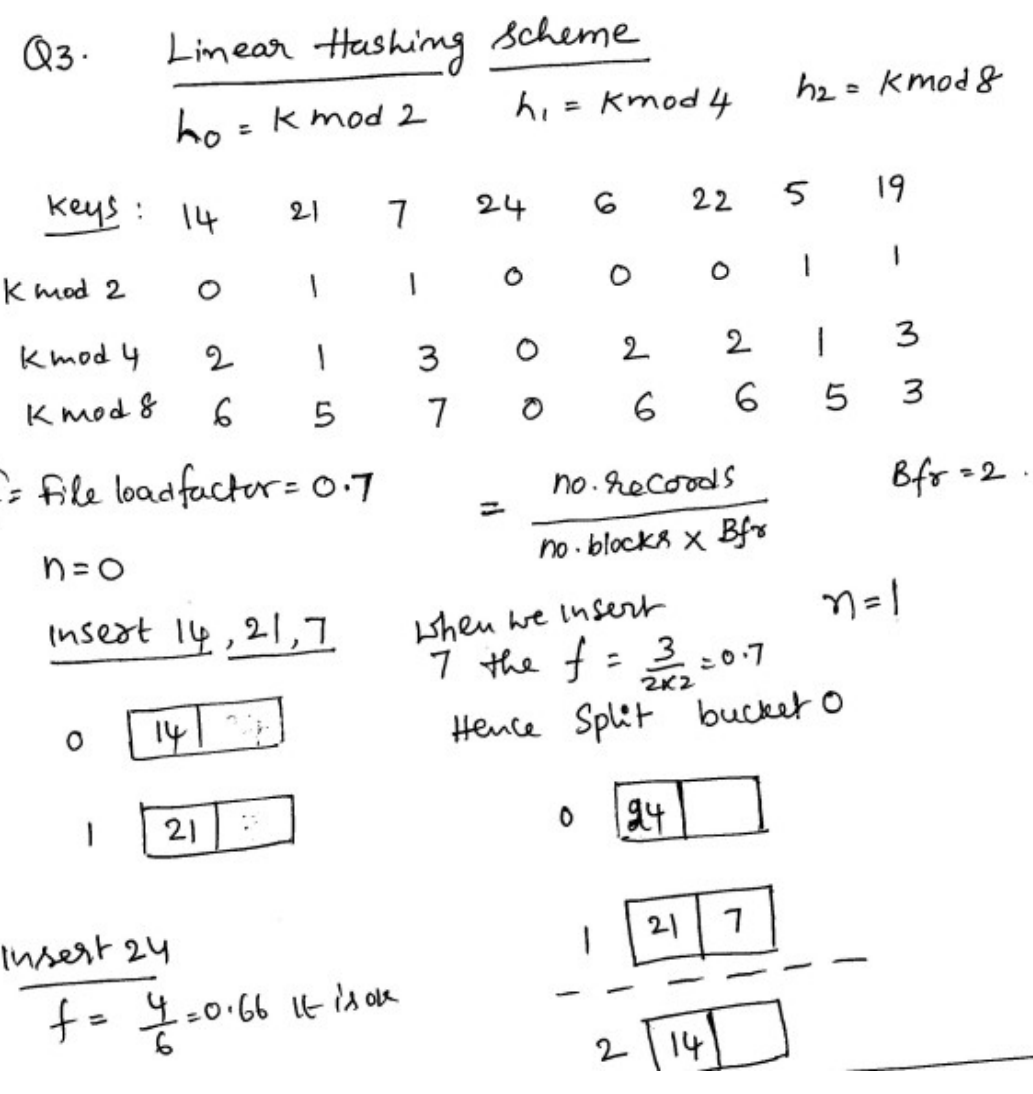 Q3. Linear Hashing Scheme
h0 = K mod 2 h1 = K mod 4 h2 = K mod 8
Keys: 14 21 7 24 6 22 5 19
K mod 2 0 1 1 0 0 0 1 1
K mod 4 2 1 3 0 2 2 1 3
K mod 8 6 5 7 0 6 6 5 3
= File loadfactor = 0.7 = no. records / no. blocks x Bfr Bfr = 2.
n = 0
insert 14, 21, 7
When we insert n = 1
7 the f = 3 / 2x2 = 0.7
Hence Split bucket 0
0 14
1 21
0 24
1 21 7
2 14
Insert 24
f = 4/6 = 0.66 It is ok